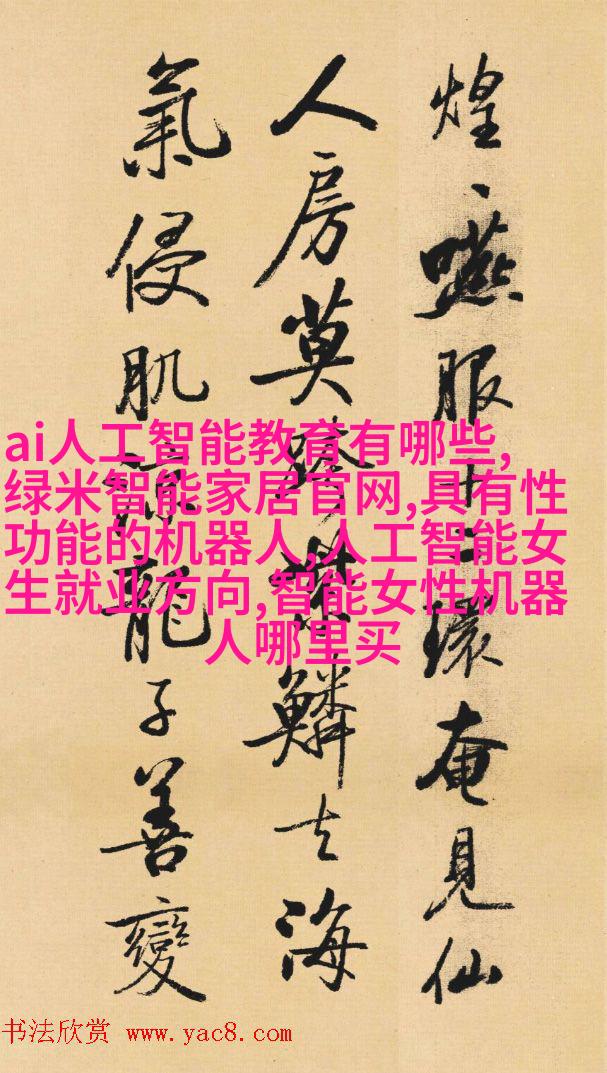 煌、嚥服十二環奄見仙
人房莫跨紫鱗去海
氣侵肌涼龍子善變
ai人工智能教育有哪些,
绿米智能家居官网,具有性
功能的机器人,人工智能女
生就业方向,智能女性机器
人哪里买
书法欣赏 www.yac8.com